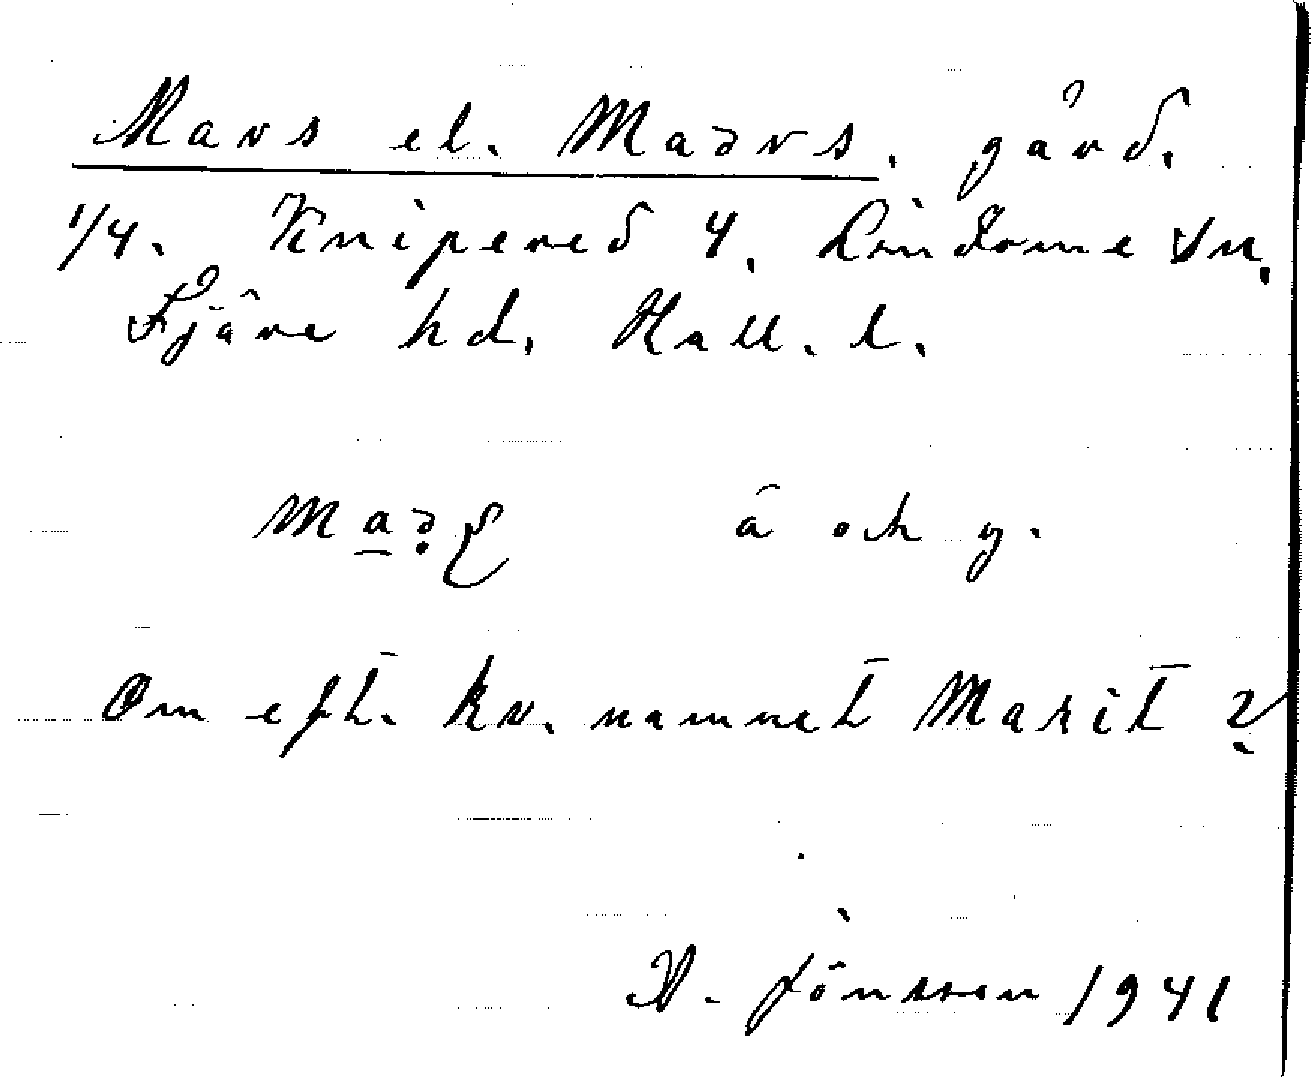 Mars el. Maars. gård.
1/4. Knipered 4. Lindome sn.
Fjäre hd. Hall. l.
ä och y.
Om eft. kv. namnet Marit?
D. Jönsson 1941